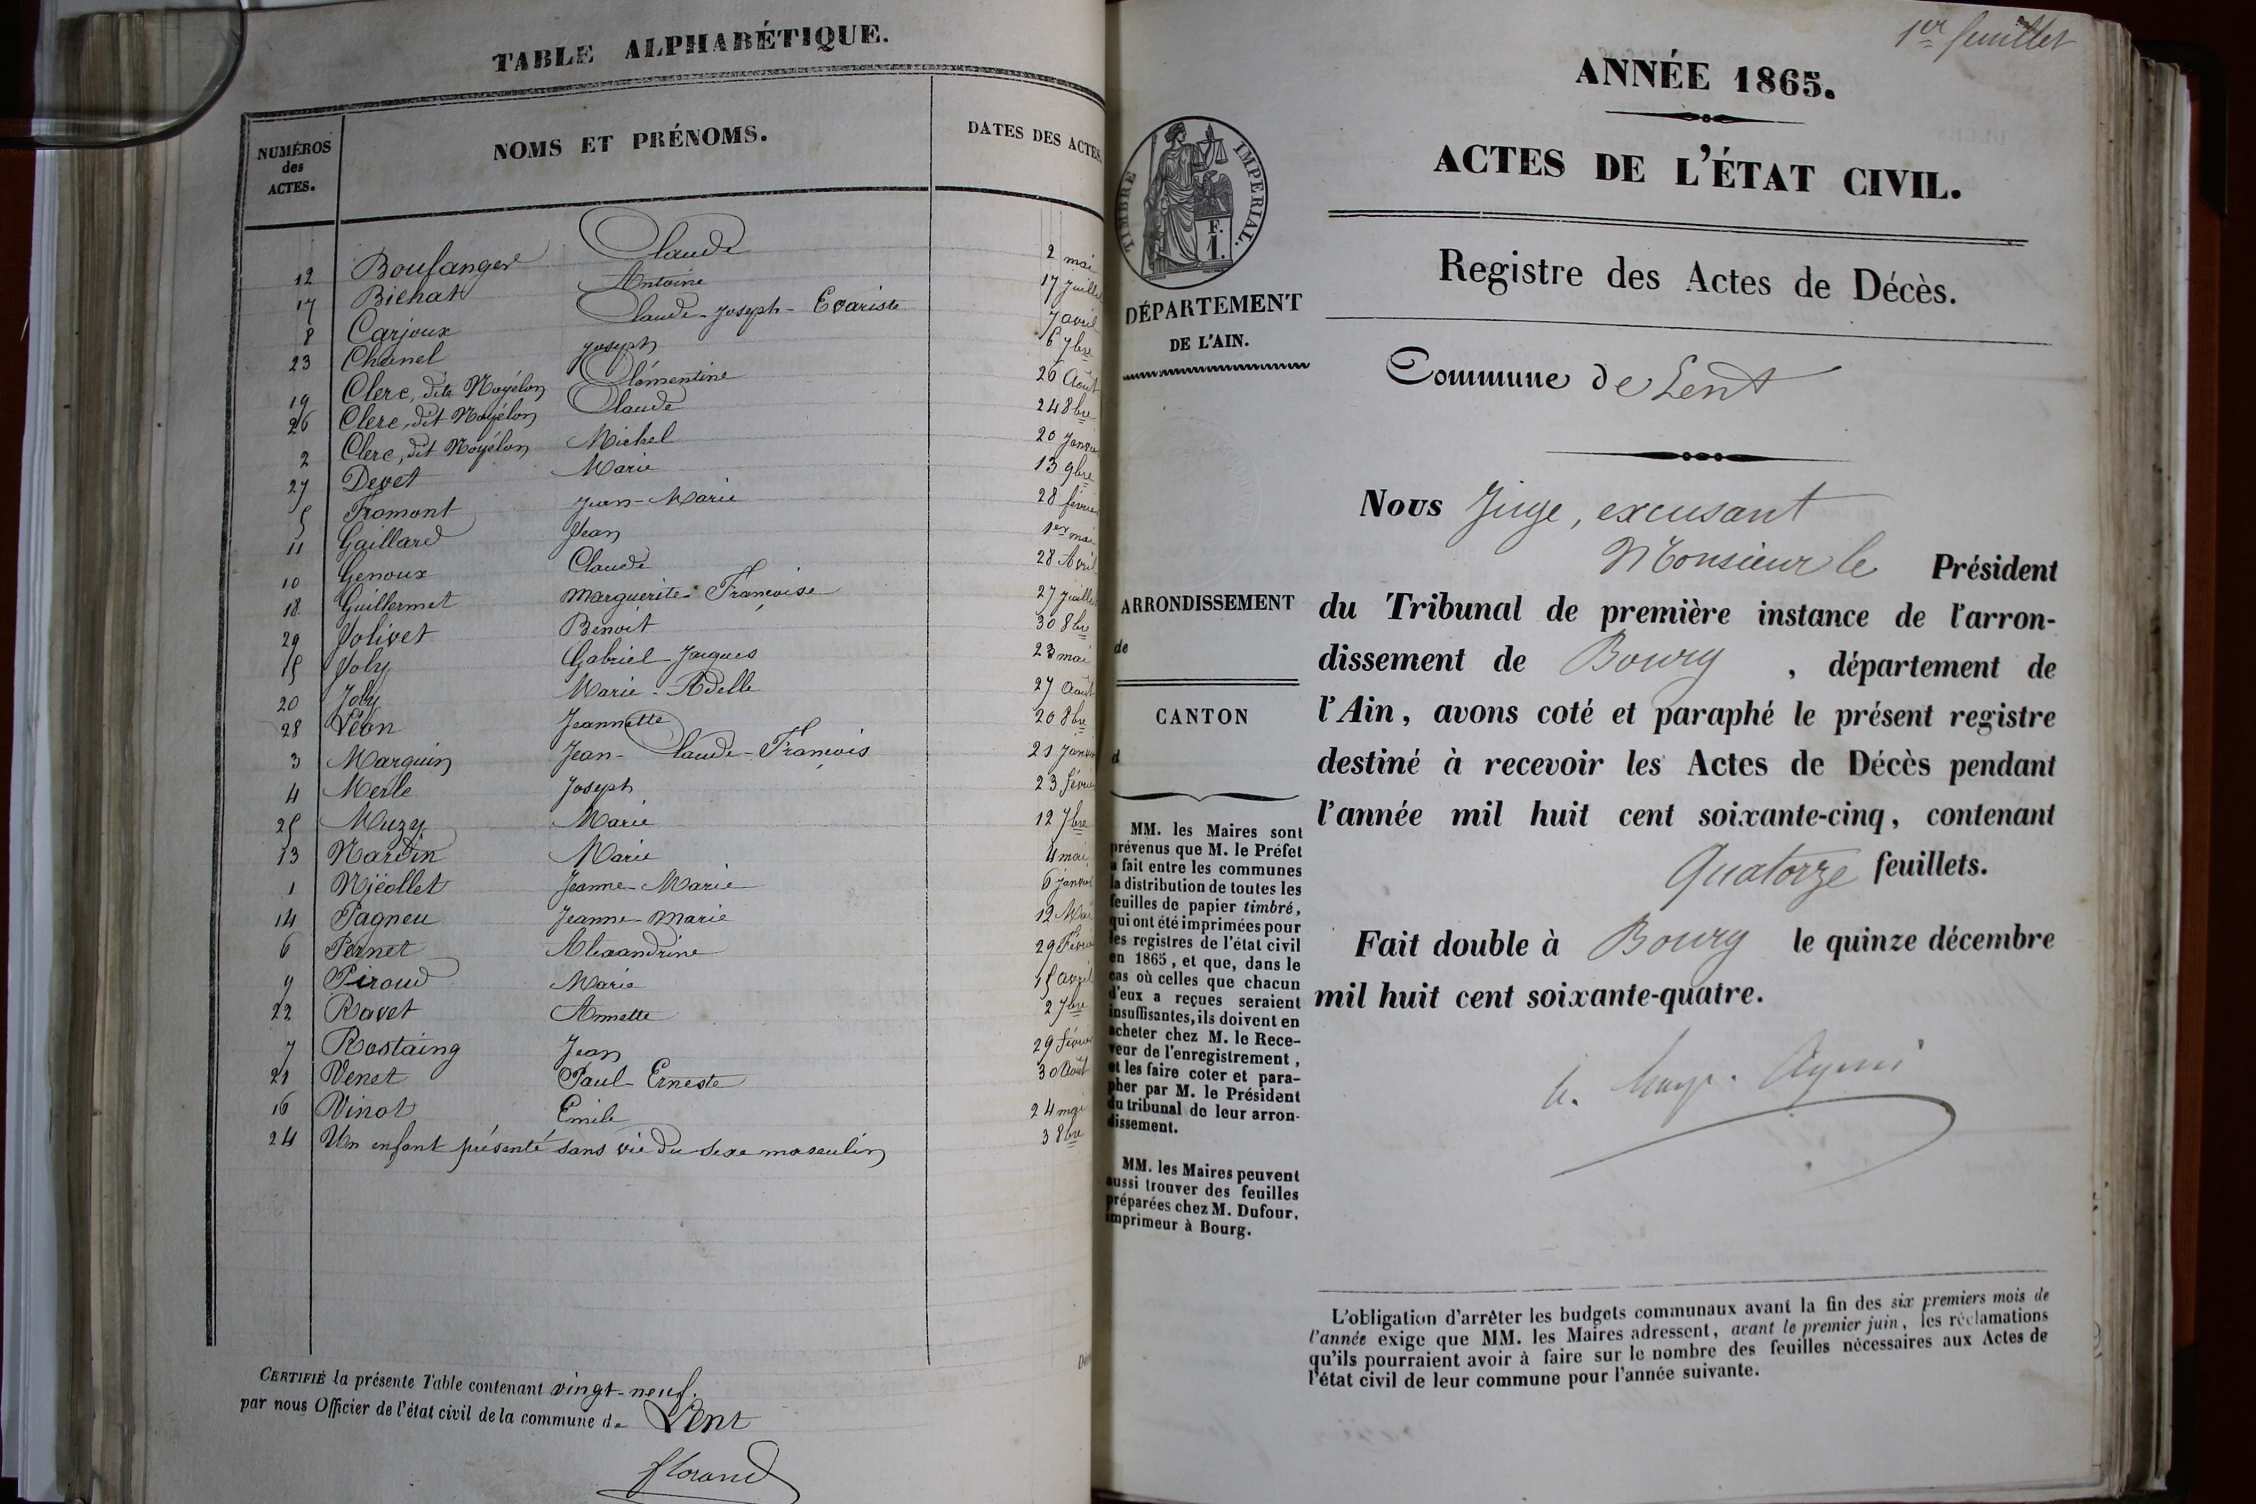 TABLE ALPHABÉTIQUE.
NUMÉROS des ACTES. NOMS ET PRÉNOMS. DATES DES ACTES.
12 Boulanger Claude 2 mai
17 Bichat Antoine 17 juillet
8 Carjoux Claude-Joseph-Evariste 7 avril
23 Chanel Joseph 6 7bre
19 Clerc, dite Noyélon Clémentine 26 Août
26 Clerc, dit Noyélon Claude 24 8bre
2 Clerc, dit Noyélon Michel 20 Janvier
27 Devet Marie 13 9bre
5 Fromont Jean-Marie 28 février
11 Gaillard Jean 1er mai
10 Genoux Claude 28 Avril
18 Guillermet Marguerite-Françoise 27 juillet
29 Jolivet Benoit 30 8bre
15 Joly Gabriel-Jacques 23 mai
20 Joly Marie-Adelle 27 Août
28 Léon Jeannette 20 8bre
3 Marquin Jean-Claude-François 21 Janvier
4 Merle Joseph 23 février
25 Muzy Marie 12 7bre
13 Nardin Marie 4 mai
1 Niéollet Jeanne-Marie 6 janvier
14 Pagneu Jeanne-Marie 12 Mai
6 Pernet Alexandrine 29 Février
9 Piroud Marie 15 avril
22 Ravet Annette 2 7bre
7 Rostaing Jean 29 Février
21 Venet Paul-Erneste 30 Août
16 Vinot Emile 24 mai
24 Un enfant présenté sans vie du sexe masculin 3 8bre
CERTIFIÉ la présente Table contenant vingt-neuf.
par nous Officier de l'état civil de la commune de Lent
florand
1er feuillet
ANNÉE 1865.
ACTES DE L'ÉTAT CIVIL.
TIMBRE IMPERIAL.
F.
1.
Registre des Actes de Décès.
DÉPARTEMENT
DE L'AIN.
Commune de Lent
Nous Juge, excusant
Monsieur le Président
du Tribunal de première instance de l'arron-
dissement de Bourg, département de
l'Ain, avons coté et paraphé le présent registre
destiné à recevoir les Actes de Décès pendant
l'année mil huit cent soixante-cinq, contenant
Quatorze feuillets.
Fait double à Bourg le quinze décembre
mil huit cent soixante-quatre.
ARRONDISSEMENT
de
CANTON
d
MM. les Maires sont
prévenus que M. le Préfet
a fait entre les communes
la distribution de toutes les
feuilles de papier timbré,
qui ont été imprimées pour
les registres de l'état civil
en 1865, et que, dans le
cas où celles que chacun
d'eux a reçues seraient
insuffisantes, ils doivent en
acheter chez M. le Rece-
veur de l'enregistrement,
et les faire coter et para-
pher par M. le Président
du tribunal de leur arron-
dissement.
MM. les Maires peuvent
aussi trouver des feuilles
préparées chez M. Dufour,
imprimeur à Bourg.
L'obligation d'arrêter les budgets communaux avant la fin des six premiers mois de
l'année exige que MM. les Maires adressent, avant le premier juin, les réclamations
qu'ils pourraient avoir à faire sur le nombre des feuilles nécessaires aux Actes de
l'état civil de leur commune pour l'année suivante.